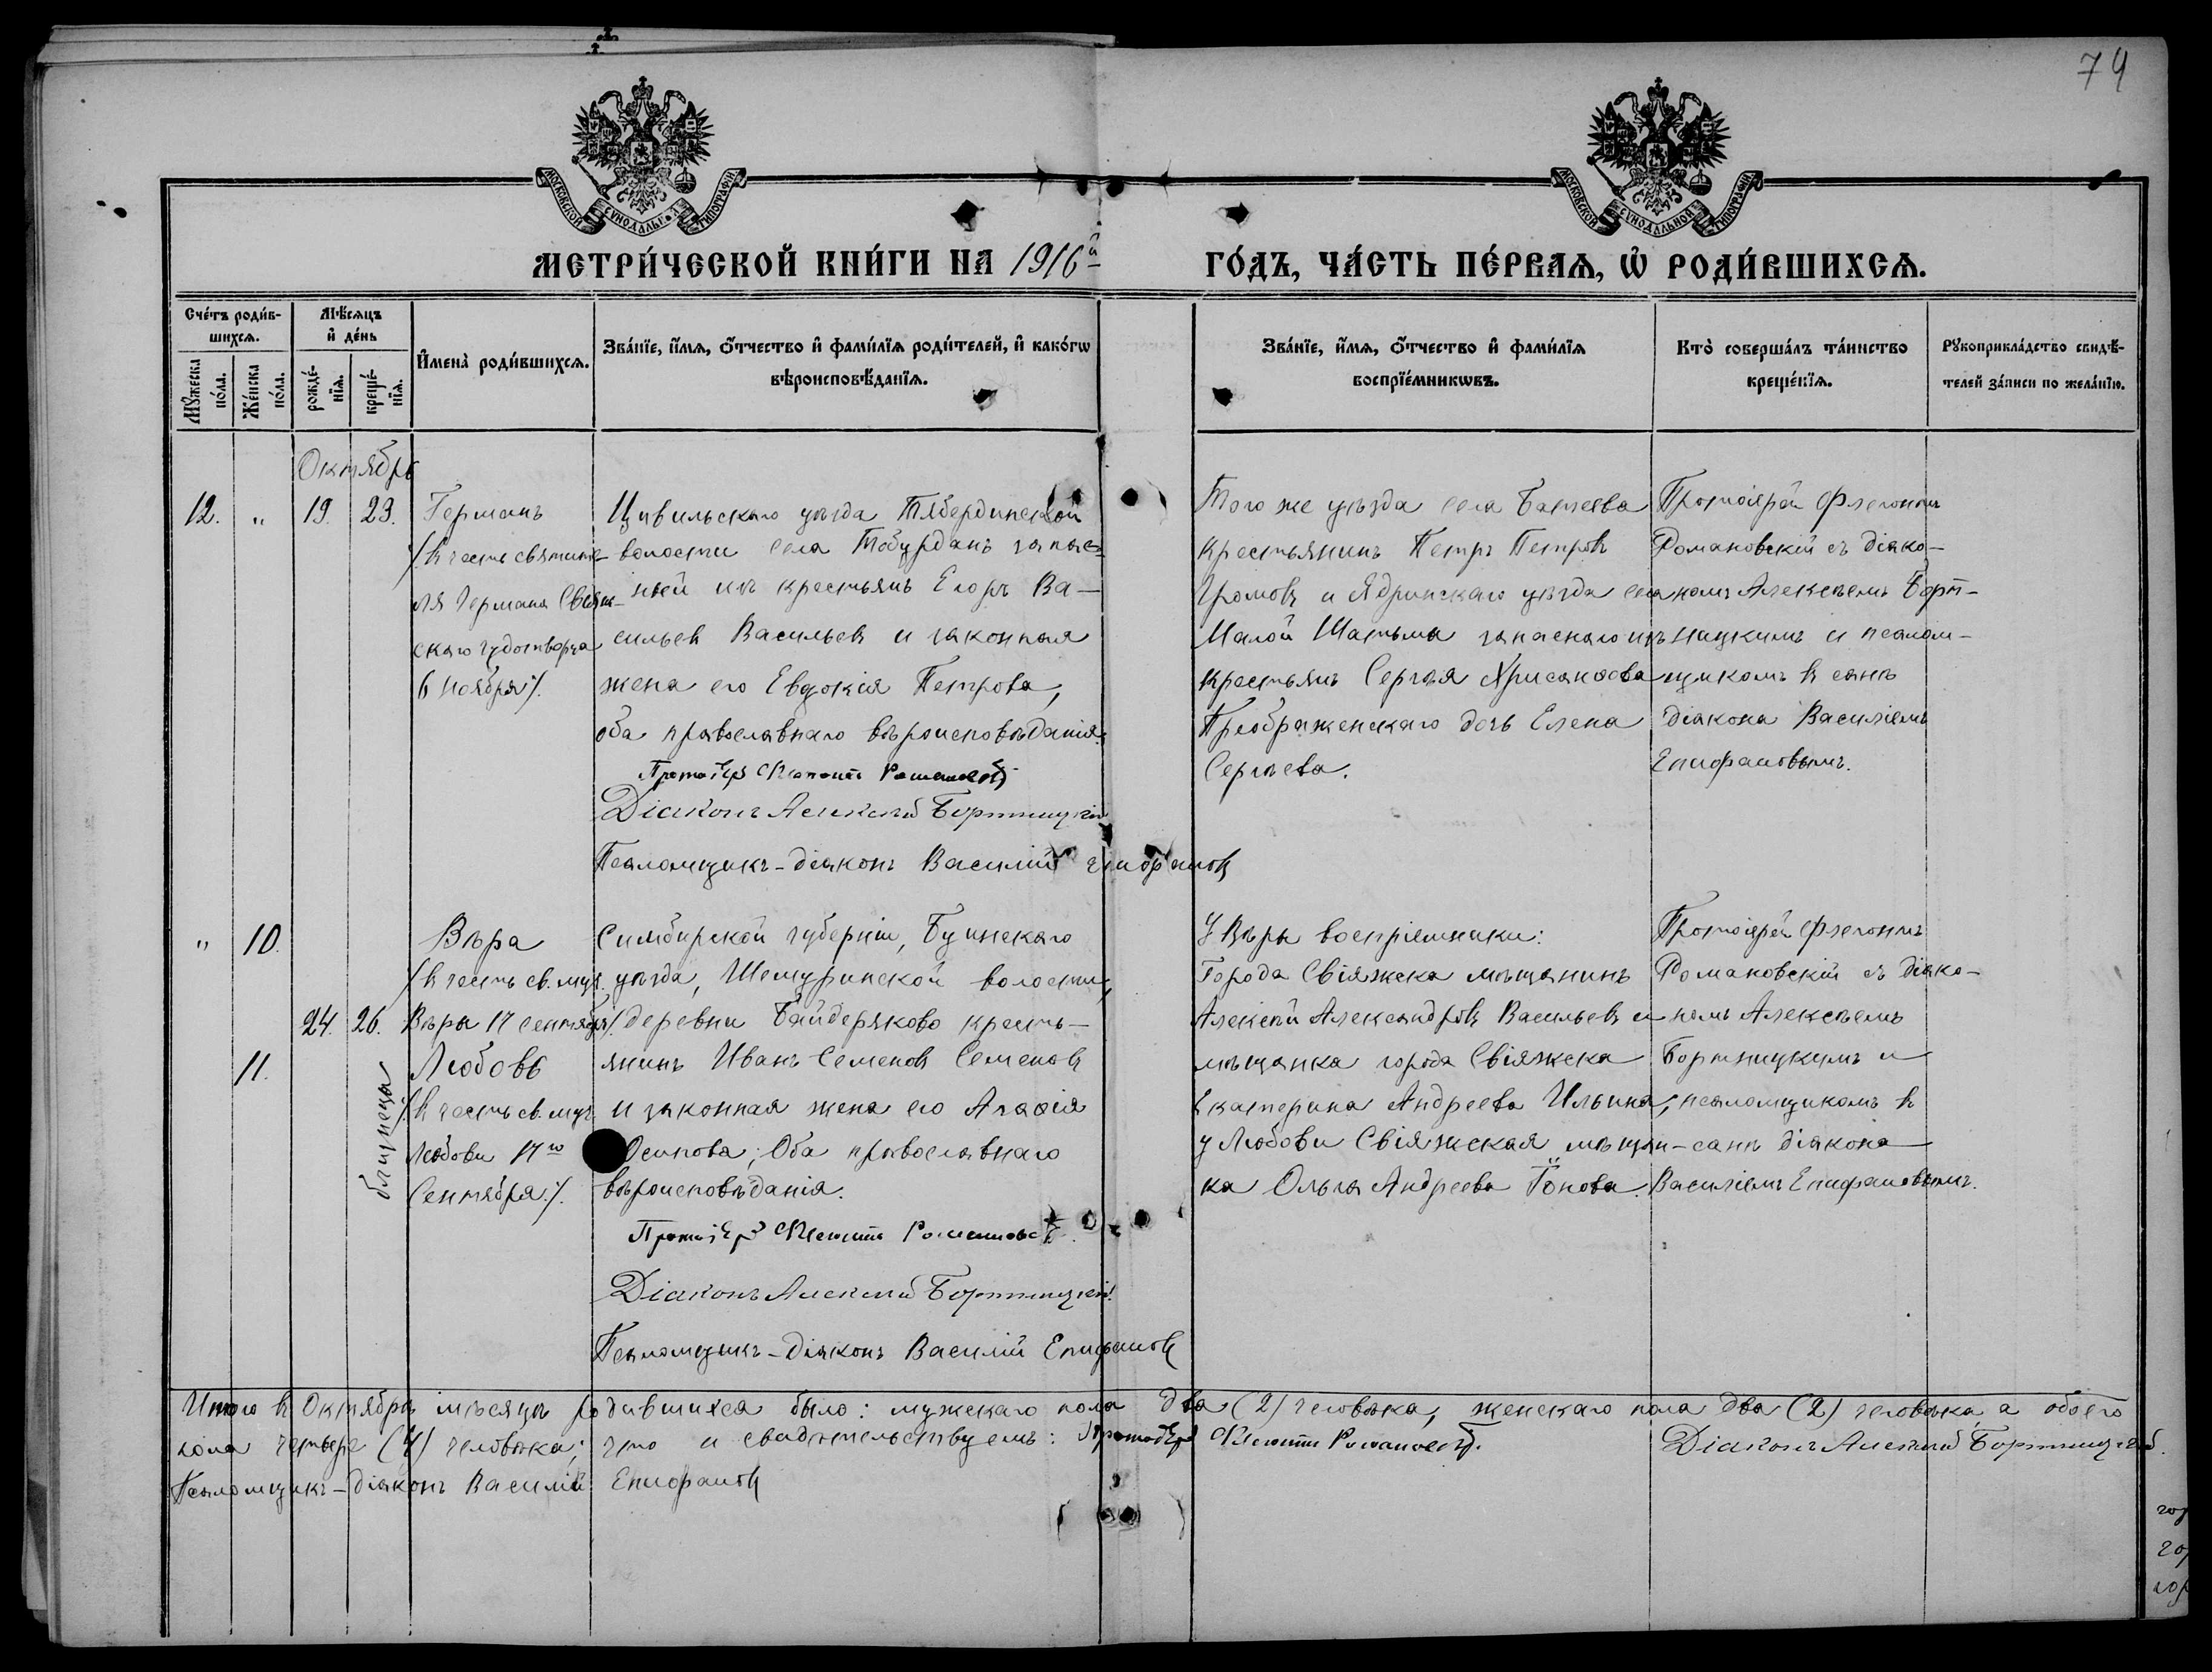 74
МОСКОВСКОЙ СѴНОДАЛЬНОЙ ТИПОГРАФІИ
МОСКОВСКОЙ СѴНОДАЛЬНОЙ ТИПОГРАФІИ
МЕТРИ́ЧЕСКОЙ КНИ́ГИ НА 1916й
ГО́ДЪ, ЧА́СТЬ ПЕ́РВАѦ, Ѡ҆ РОДИ́ВШИХСѦ.
Сче́тъ роди́в-
шихсѧ.
Мꙋ́жеска
по́ла.
Же́нска
по́ла.
Мѣ́сѧцъ
и҆ де́нь
рожде́-
нїѧ.
креще́-
нїѧ.
И҆мена̀ роди́вшихсѧ.
Зва́нїе, и҆́мѧ, ѻ҆́тчество и҆ фами́лїѧ роди́телей, и҆ како́гѡ
вѣроисповѣ́данїѧ.
Зва́нїе, и҆́мѧ, ѻ҆́тчество и҆ фами́лїѧ
воспрїе́мникѡвъ.
Кто̀ соверша́лъ та́инство
креще́нїѧ.
Рꙋкоприкла́дство свидѣ́-
телей за́писи по жела́нїю.
Октябрь
12. " 19. 23.
Германъ
/:въ честь святите-
ля Германа Свіяж-
скаго чудотворца
6 ноября:/.
Цивильскаго уѣзда Тябердинской
волости села Тобурданъ запас-
ный изъ крестьянъ Егоръ Ва-
сильевъ Васильевъ и законная
жена его Евдокія Петрова,
оба православнаго вѣроисповѣданія.
Протоіерей Флегонтъ Романовскій
Діаконъ Алексѣй Бортницкій
Псаломщикъ-діаконъ Василій Епифановъ
Того же уѣзда села Батеева
крестьянинъ Петръ Петровъ
Громовъ и Ядринскаго уѣзда села
Малой Шатьмы запаснаго изъ
крестьянъ Сергѣя Хрисанѳова
Преображенскаго дочь Елена
Сергѣева.
Протоіерей Флегонтъ
Романовскій съ діако-
номъ Алексѣемъ Борт-
ницкимъ и псалом-
щикомъ въ санѣ
діакона Василіемъ
Епифановымъ.
" 10.
11.
24. 26.
близнецы
Вѣра
/:въ честь св. муч.
Вѣры 17 сентября:/.
Любовь
/:въ честь св. муч.
Любови 17го
Сентября:/.
Симбирской губерніи, Буинскаго
уѣзда, Шемуршинской волости,
деревни Байдеряково кресть-
янинъ Иванъ Семеновъ Семеновъ
и законная жена его Агаѳія
Осипова; Оба православнаго
вѣроисповѣданія.
Протоіерей Флегонтъ Романовскій.
Діаконъ Алексѣй Бортницкій
Псаломщикъ-діаконъ Василій Епифановъ
У Вѣры воспріемники:
Города Свіяжска мѣщанинъ
Алексѣй Александровъ Васильевъ и
мѣщанка города Свіяжска
Екатерина Андреева Ильина;
у Любови Свіяжская мѣщан-
ка Ольга Андреева
Протоіерей Флегонтъ
Романовскій съ діако-
номъ Алексѣемъ
Бортницкимъ и
псаломщикомъ въ
санѣ діакона
Василіемъ Епифановымъ.
Итого въ Октябрѣ мѣсяцѣ родившихся было: мужескаго пола два (2) человѣка, женскаго пола два (2) человѣка, а обоего
пола четыре (4) человѣка; что и свидѣтельствуемъ: Протоіерей Флегонтъ Романовскій. Діаконъ Алексѣй Бортницкій.
Псаломщикъ-діаконъ Василій Епифановъ